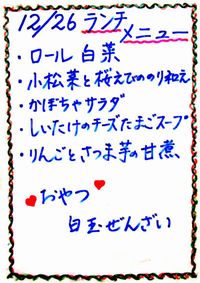 12/26 ランチ
メニュー
・ロール白菜
・小松菜と桜えびののり和え
・かぼちゃサラダ
・しいたけのチーズたまごスープ
・りんごとさつま芋の甘煮、
おやつ
白玉ぜんざい